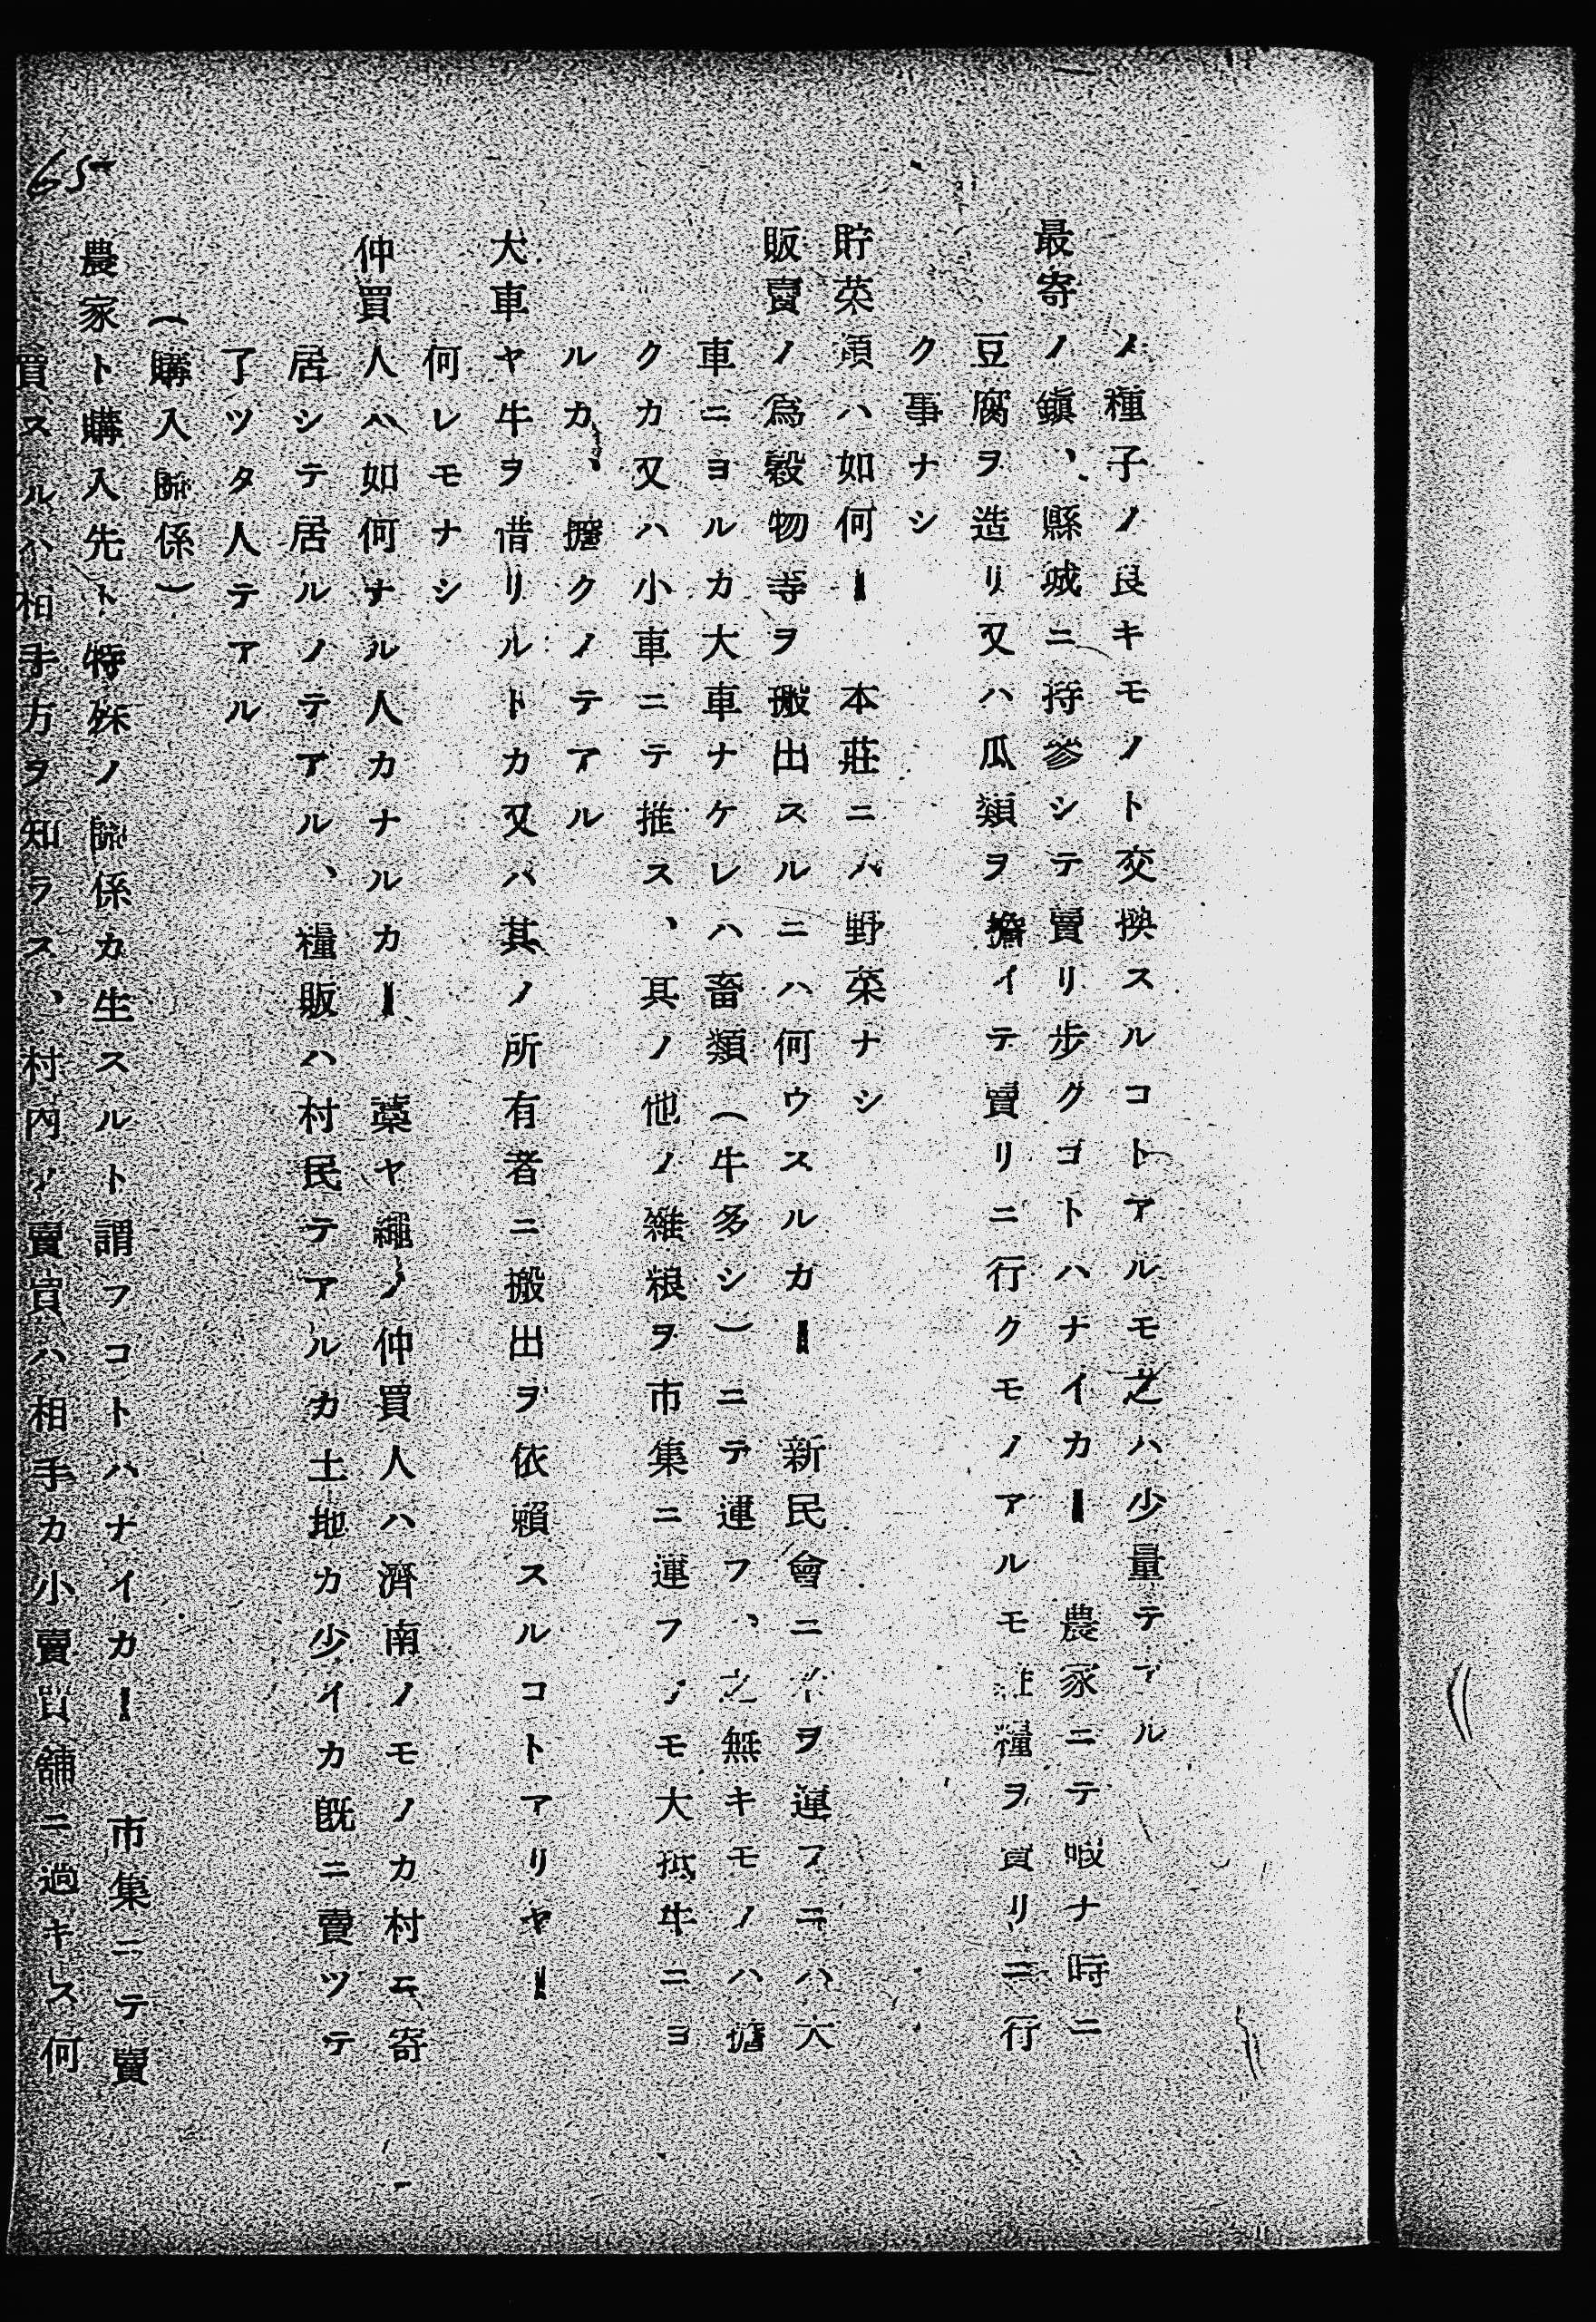 ノ種子ノ良キモノト交換スルコトアルモ之ハ少量テアル
最寄ノ鎭、縣城ニ持參シテ賣リ歩クコトハナイカー 農家ニテ暇ナ時ニ
豆腐ヲ造リ又ハ瓜類ヲ擔イテ賣リニ行クモノアルモ 糧ヲ賣リニ行
ク事ナシ
貯菜 ハ如何ー 本莊ニハ野菜ナシ
販賣ノ爲穀物等ヲ搬出スルニハ何ウスルカー 新民會ニ ヲ運フニハ大
車ニヨルカ大車ナケレハ畜類(牛多シ)ニテ運フ、之無キモノハ擔
クカ又ハ小車ニテ推ス、其ノ他ノ雜粮ヲ市集ニ運フノモ大抵牛ニヨ
ルカ、擔クノテアル
大車ヤ牛ヲ借リルトカ又ハ其ノ所有者ニ搬出ヲ依賴スルコトアリヤー
何レモナシ
仲買人ハ如何ナル人カナルカー 藁ヤ繩ノ仲買人ハ濟南ノモノカ村ニ寄
居シテ居ルノテアル、糧販ハ村民テアルカ土地カ少イカ既ニ賣ツテ
了ツタ人テアル
(購入關係)
農家ト購入先ト特殊ノ關係カ生スルト謂フコトハナイカー 市集ニテ賣
買スルハ相手方ヲ知ラス、村內ノ賣買ハ相手カ小賣買舖ニ過キス何
65